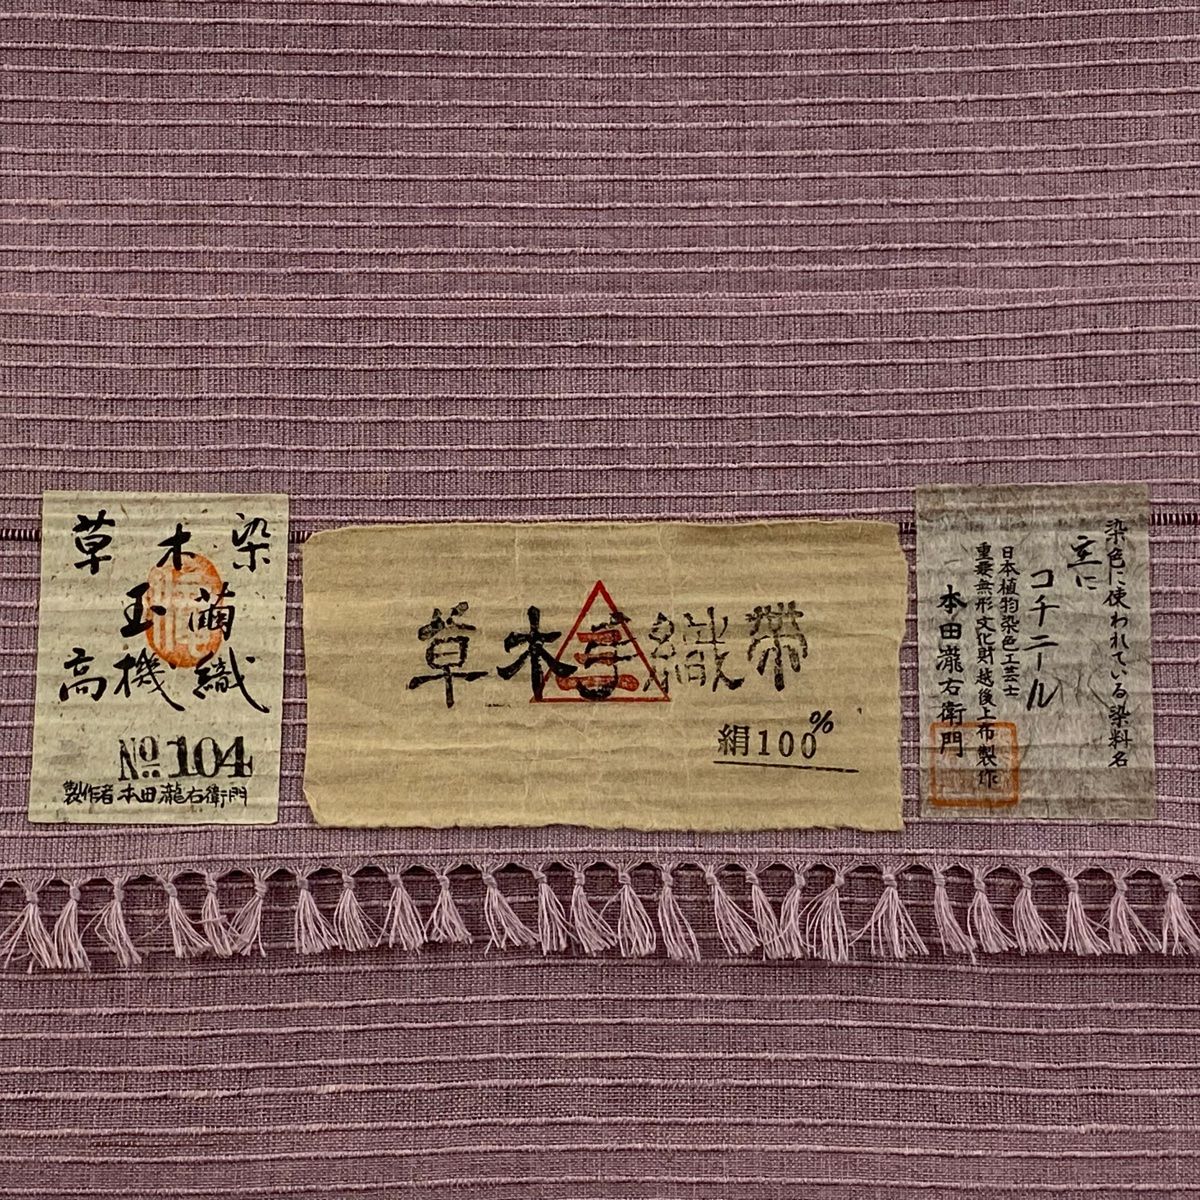 草木染
玉繭
高機織
No 104
製作者 本田瀧右衛門
草木手織帯
絹100%
染色に使われている染料名
主に
コチニール
日本植物染色工芸士
重要無形文化財越後上布製作
本田瀧右衛門